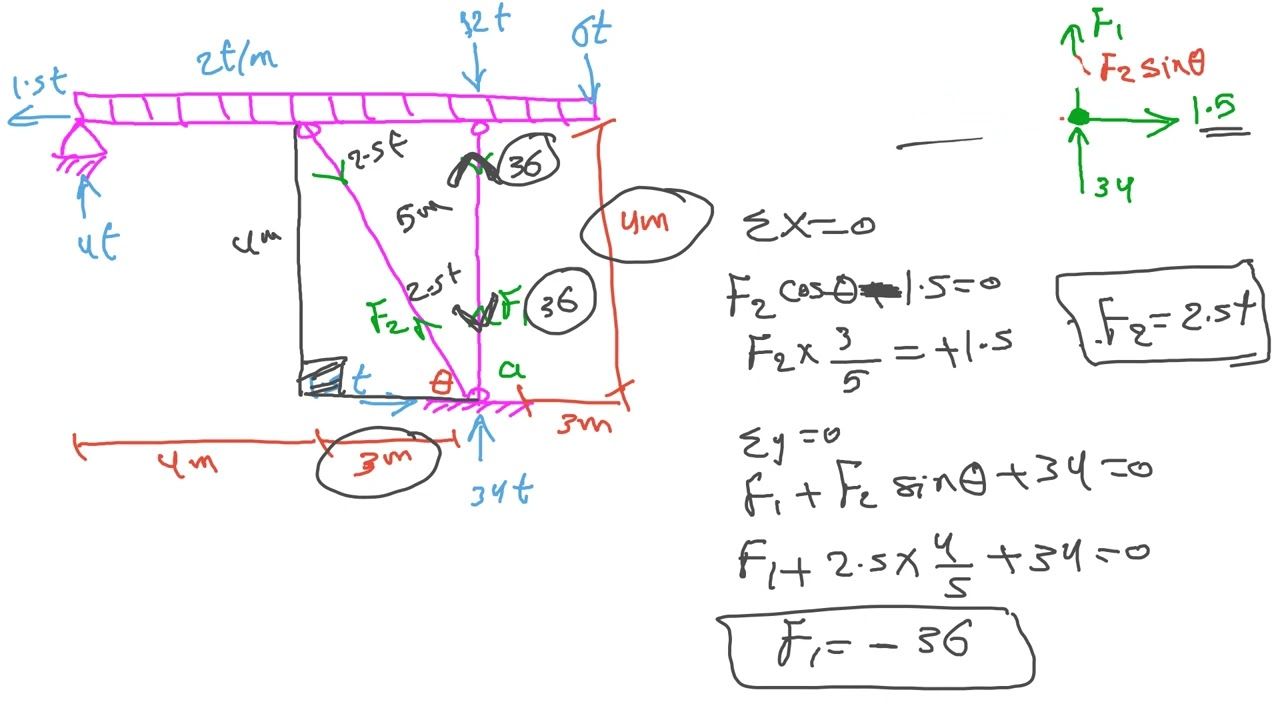 32t
6t
2t/m
1.5t
2.5t
36
5m
4m
4m
4t
2.5t
F2
F1
36
t
θ
a
3m
4m
3m
34t
F1
F2 sinθ
1.5
34
Σx=0
F2 cosθ - 1.5=0
F2 × 3/5 = +1.5
F2 = 2.5t
Σy=0
F1 + F2 sinθ + 34 = 0
F1 + 2.5 × 4/5 + 34 = 0
F1 = - 36